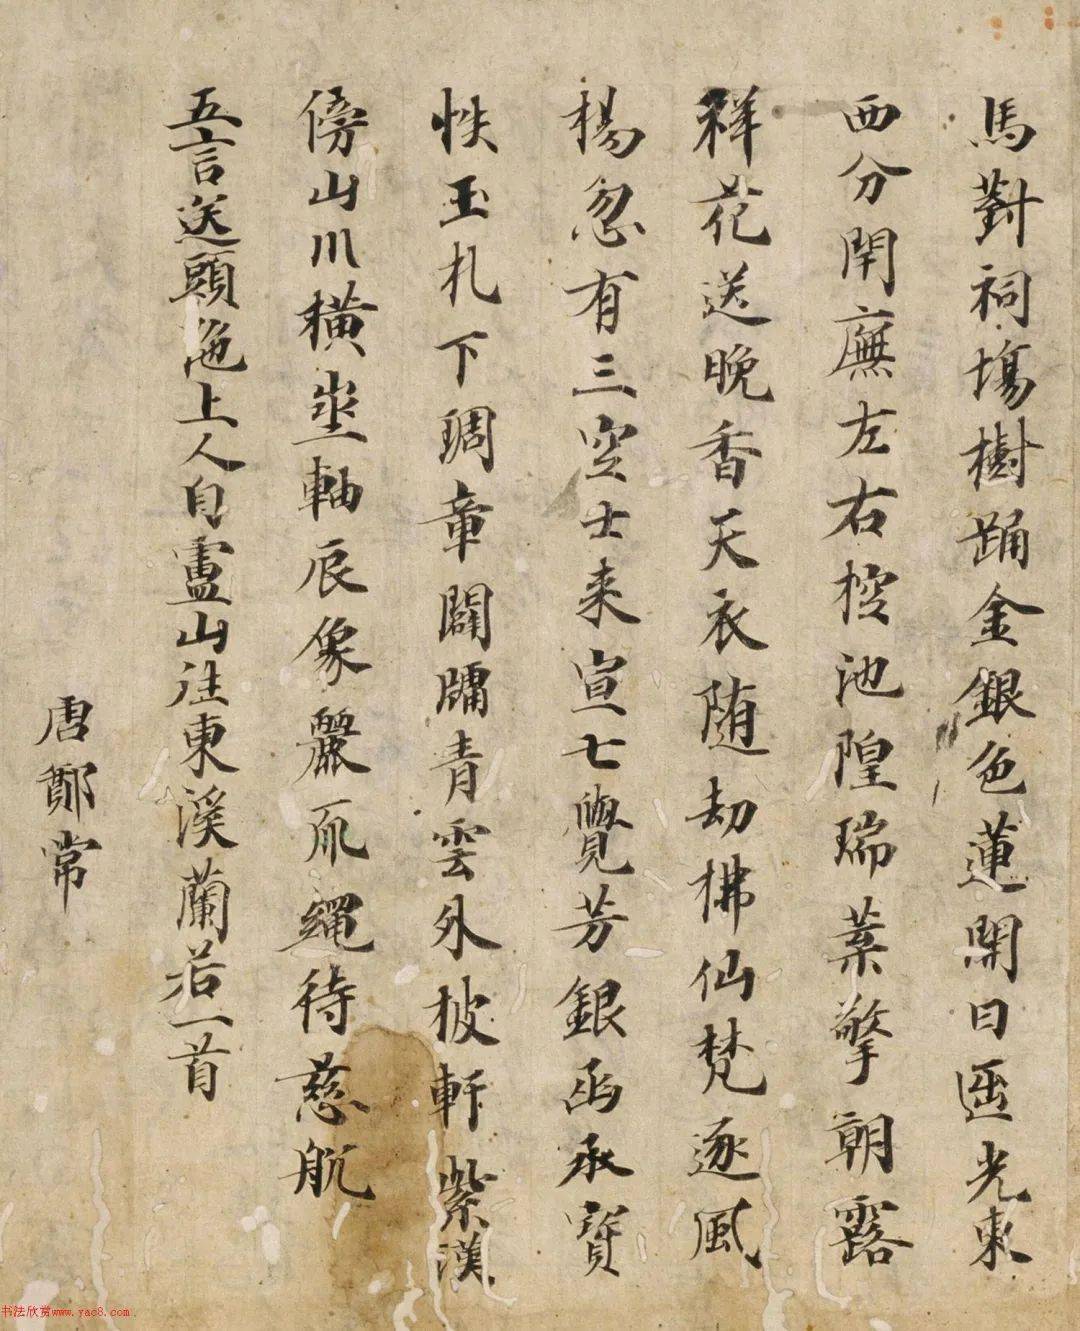 馬對祠塲樹踊金銀色蓮開日匝光東
西分閈廡左右控池隍瑞葉擎朝露
祥花送晚香天衣随劫拂仙梵逐風
楊忽有三空士来宣七覺芳銀函承寳
帙玉札下琱章闢牖青雲外披軒紫漢
傍山川橫坐軸辰像麗爪繩待慈航
五言送頭陁上人自廬山往東溪蘭若一首
唐鄭常
书法欣赏www.yac8.com